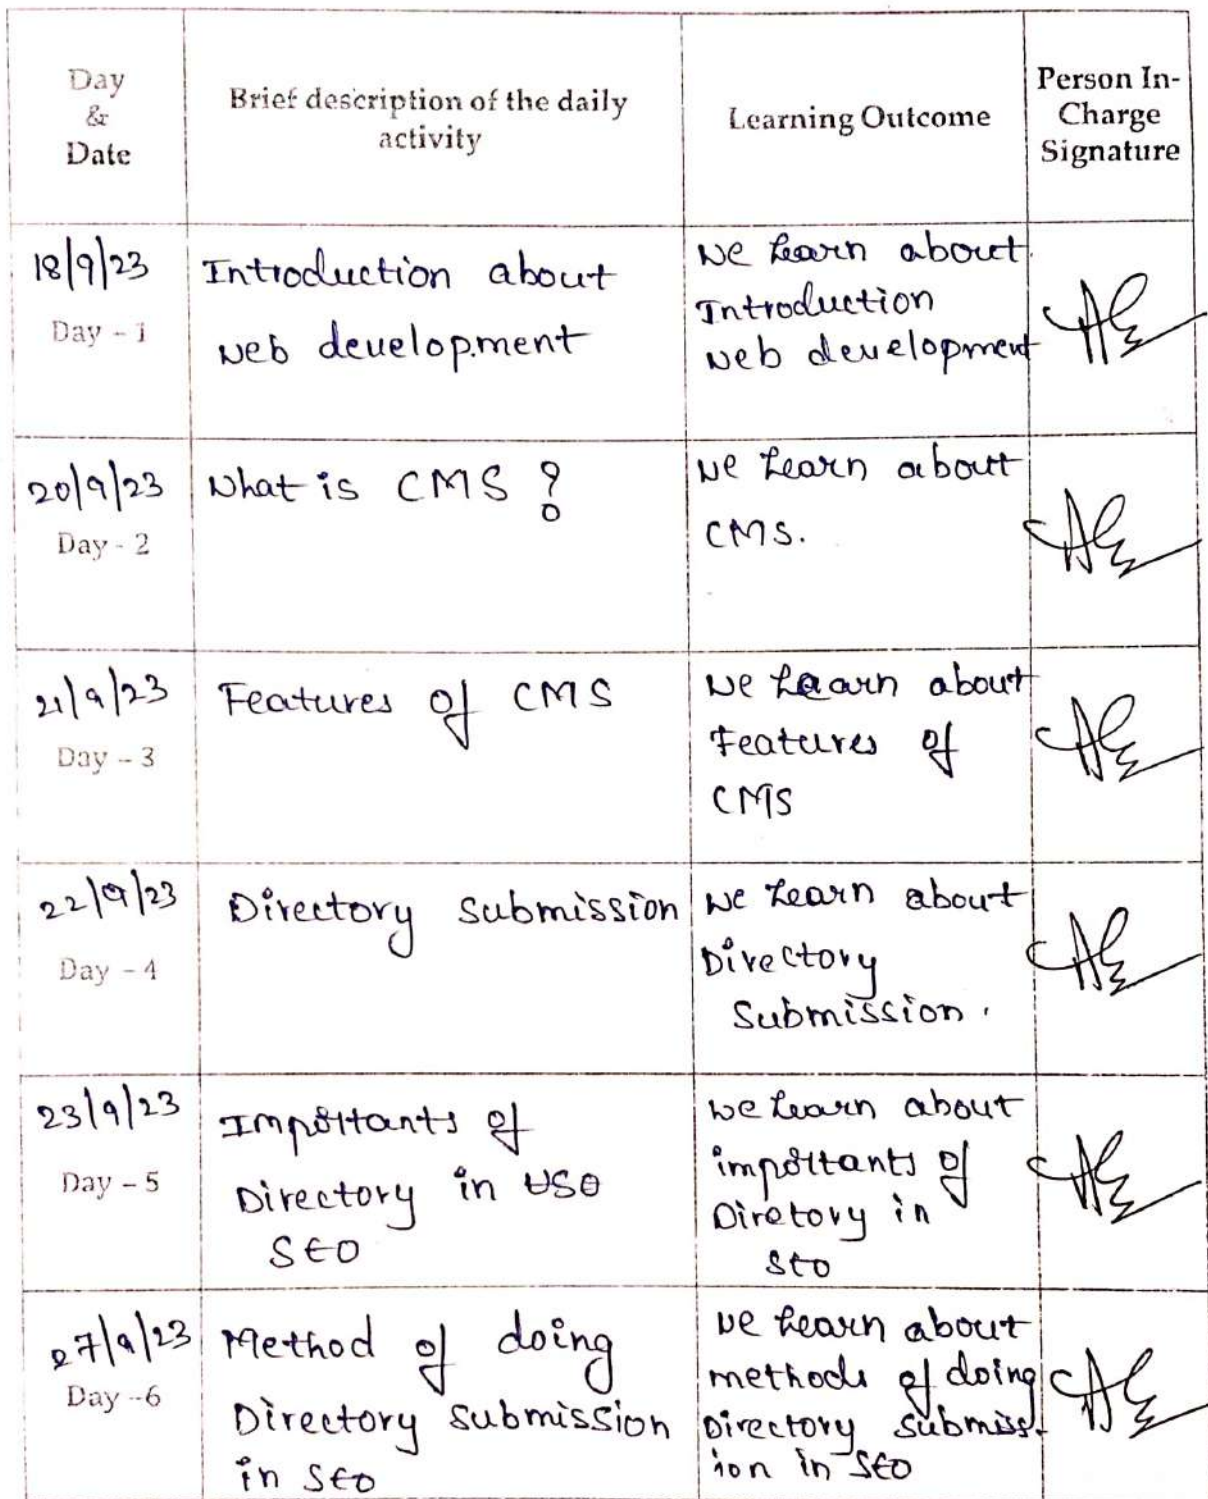 Day
&
Date
Brief description of the daily
activity
Learning Outcome
Person In-
Charge
Signature
18/9/23
Day - 1
Introduction about
web development
We learn about
Introduction
web development
20/9/23
Day - 2
What is CMS ?
We learn about
CMS.
21/9/23
Day - 3
Features of CMS
We learn about
Features of
CMS
22/9/23
Day - 4
Directory Submission
We learn about
Directory
Submission.
23/9/23
Day - 5
Importants of
Directory in
SEO
We learn about
importants of
Diretory in
SEO
27/9/23
Day -6
Method of doing
Directory submission
in SEO
We learn about
methods of doing
Directory submiss-
ion in SEO